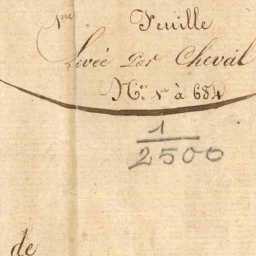 1re Feuille
Levée Par Cheval
Nos 1er à 684
1
2500
de